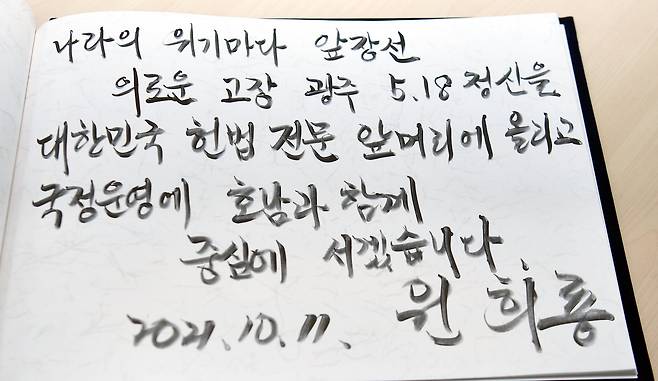 나라의 위기마다 앞장선
의로운 고장 광주 5.18 정신을
대한민국 헌법 전문 앞머리에 올리고
국정운영에 호남과 함께
중심에 서겠습니다.
2021.10.11. 원희룡